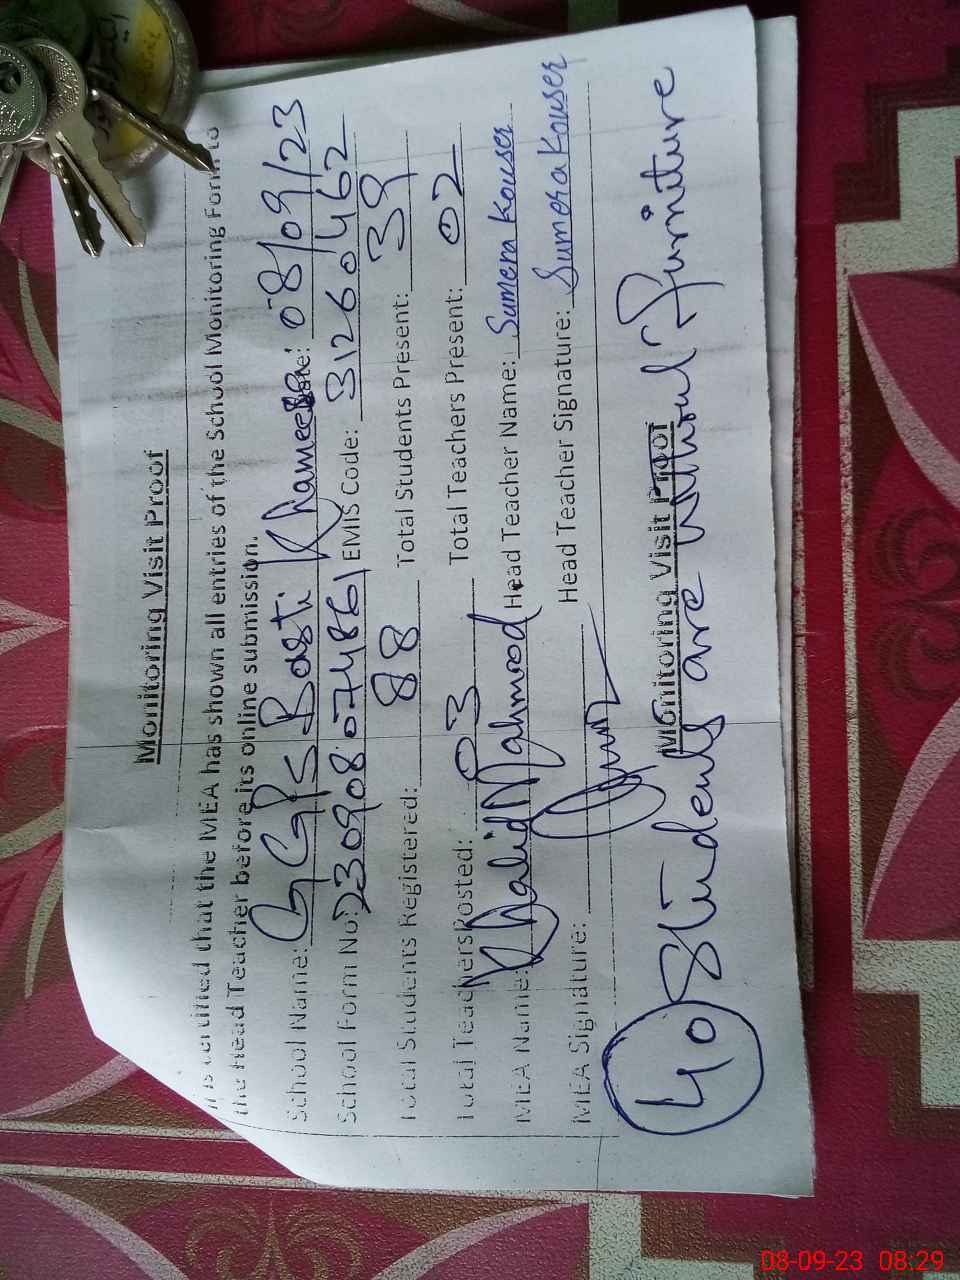 Monitoring Visit Proof
It is certified that the MEA has shown all entries of the School Monitoring Form to
the Head Teacher before its online submission.
School Name: GGPS Basti Khameesa Date: 08/09/23
School Form No: 230908074861 EMIS Code: 31260462
Total Students Registered: 88 Total Students Present: 39
Total Teachers Posted: 03 Total Teachers Present: 02
MEA Name: Khalid Mahmood Head Teacher Name: Sumera Kouser
MEA Signature: Head Teacher Signature: Sumera Kouser
Monitoring Visit Proof
40 Students are without Furniture
08-09-23 08:29